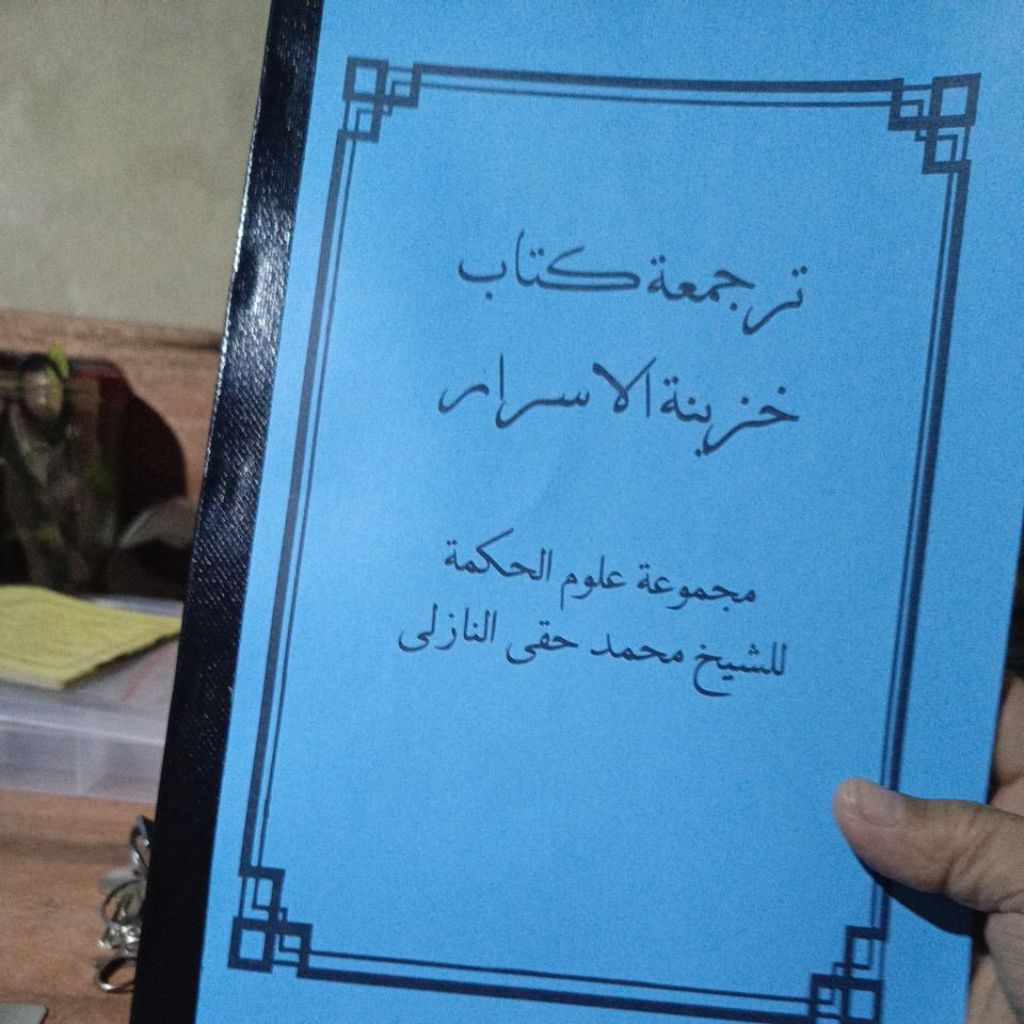 ترجمعة كتاب
خزينة الاسرار
مجموعة علوم الحكمة
للشيخ محمد حقى النازلى